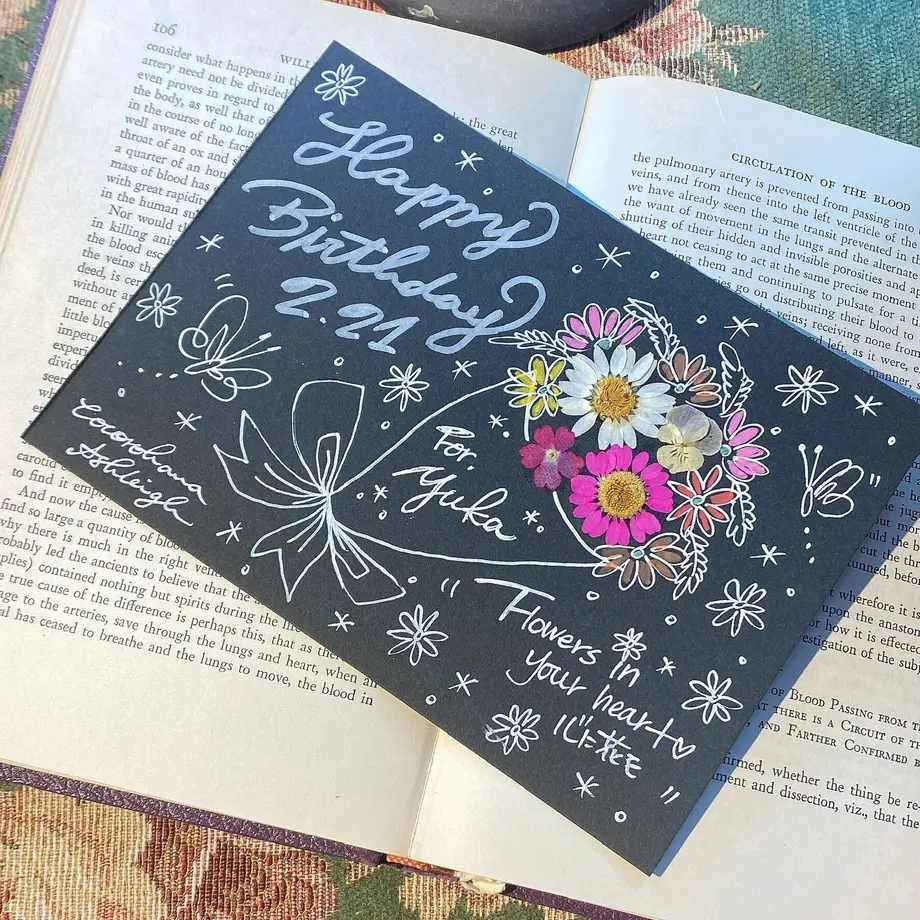 Happy
Birthday
2.21
For.
Yuka
cocorohana
Ashleigh
"Flowers in
your heart♡
心に花を"
106
WILL
consider what happens in th
artery need not be divided
even proves in regard to
the body, as well that o
in the course of no long
well aware of the fact
throat of an ox and s
a quarter of an hou
mass of blood has
with great rapidity
in the human su
Nor would
in killing anim
the blood esc
the veins th
deed, is cer
without a
ment of
little bloo
impetu
experi
divid
the great
carotid
to find it empty
And now the cause
find so large a quantity of bloo
why there is much in the right ven
probably led the ancients to believe that the
plies) contained nothing but spirits during the li
e true cause of the difference is perhaps this, that as the
age to the arteries, save through the lungs and heart, when an
al has ceased to breathe and the lungs to move, the blood in
CIRCULATION OF THE BLOOD
the pulmonary artery is prevented from passing into
veins, and from thence into the left ventricle of the
we have already seen the same transit prevented in
the want of movement in the lungs and the alternate
shutting of their hidden and invisible porosities and
heart not ceasing to act at the same precise moment
them and continuing to pulsate for a ti
go on distributing their blood to
veins; receiving none from
left, as it were, e
manner,
OF BLOOD PASSING FROM
THERE IS A CIRCUIT OF TH
AND FARTHER CONFIRMED B
firmed, whether the thing be re-
ment and dissection, viz., that the